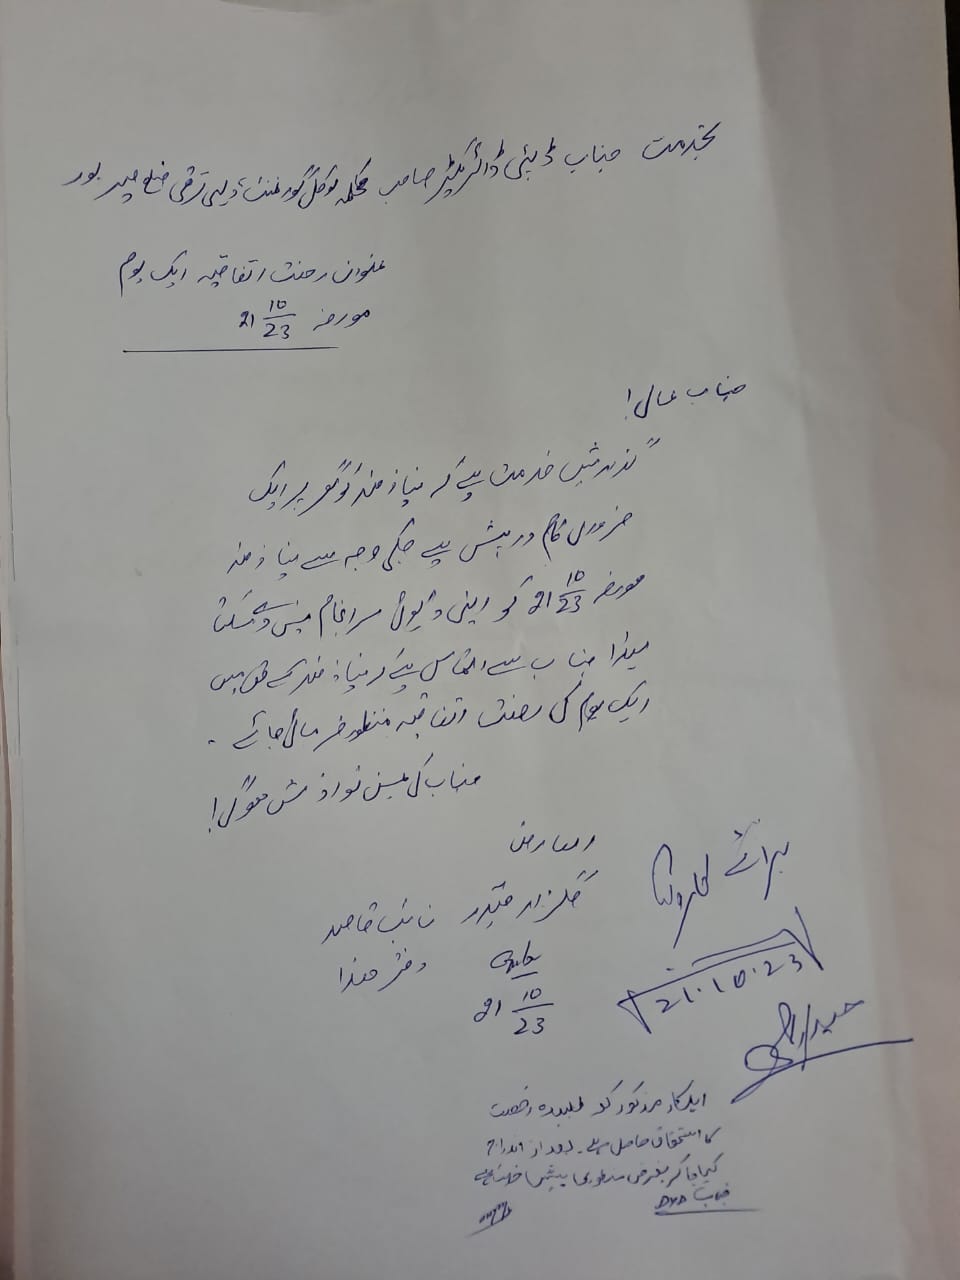 بخدمت جناب ڈپٹی ڈائریکٹر صاحب محکمہ لوکل گورنمنٹ، دیہی ترقی ضلع میر پور
عنوان رخصت اتفاقیہ ایک یوم
مورخہ 21 10/23
جناب عالی!
گذارش خدمت ہے کہ نیاز مند کو گھر پر ایک
ضروری کام درپیش ہے جسکی وجہ سے نیاز مند
مورخہ 21 10/23 کو اپنی ڈیوٹی سرانجام نہیں دے سکتا
لہذا جناب سے التماس ہے کہ نیاز مند کے حق میں
ایک یوم کی رخصت اتفاقیہ منظور فرمائی جائے ۔
جناب کی عین نوازش ہوگی!
العارض
گلزار حیدر نائب قاصد
دفتر ھذا
21 10/23
برائے کاروائی
21.10.23
اہلکار مذکور کو مطلوبہ رخصت
کا استحقاق حاصل ہے۔ بعد از اندراج
بغرض منظوری پیش خدمت ہے
جناب